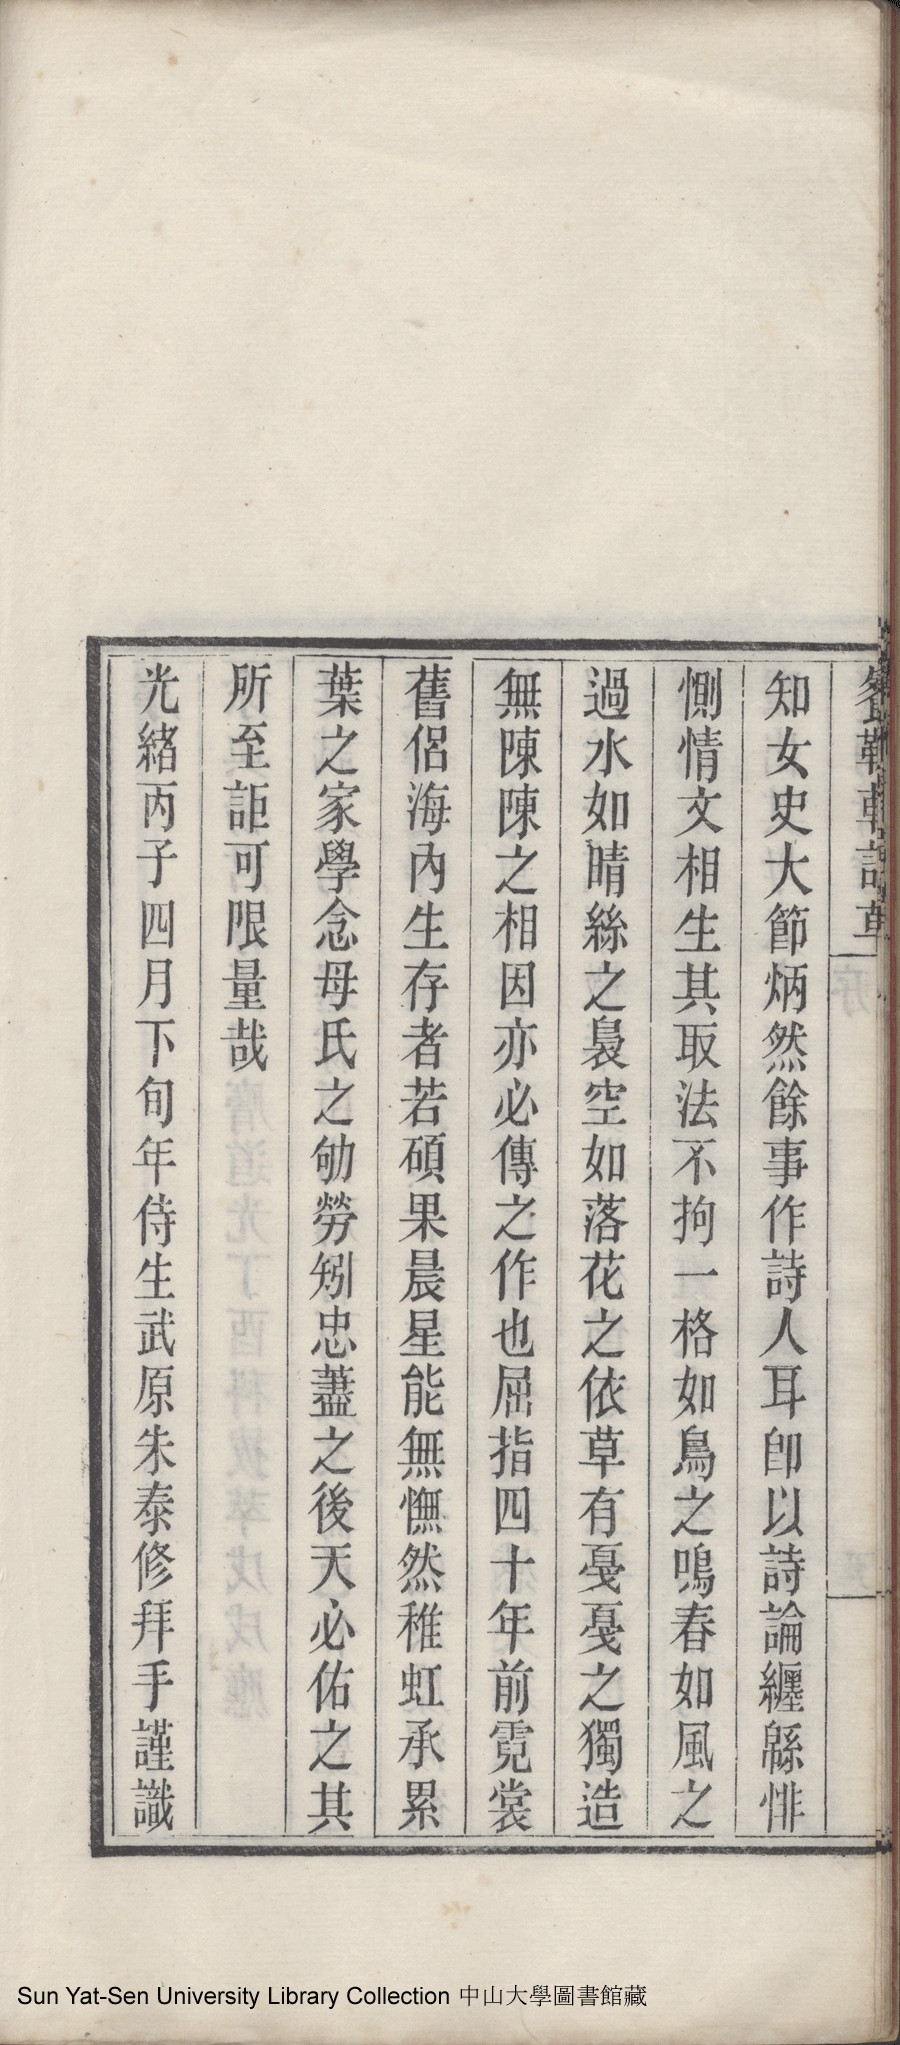 知女史大節炳然餘事作詩人耳卽以詩論纏緜悱
惻情文相生其取法不拘一格如鳥之鳴春如風之
過水如晴絲之裊空如落花之依草有戞戞之獨造
無陳陳之相因亦必傳之作也屈指四十年前霓裳
舊侶海內生存者若碩果晨星能無憮然稚虹承累
葉之家學念母氏之劬勞矧忠藎之後天必佑之其
所至詎可限量哉
光緒丙子四月下旬年侍生武原朱泰修拜手謹識
Sun Yat-Sen University Library Collection 中山大學圖書館藏